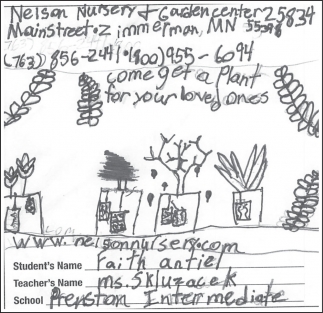 Nelson Nursery & Gardencenter 25834
Mainstreet: Zimmerman, MN 55398
(763) 856-2441 • 1(800) 955-6094
come get a Plant
for your loved ones
www.nelsonnursery.com
Student's Name Faith antiel
Teacher's Name ms. Skluzacek
School Prenston Intermediate